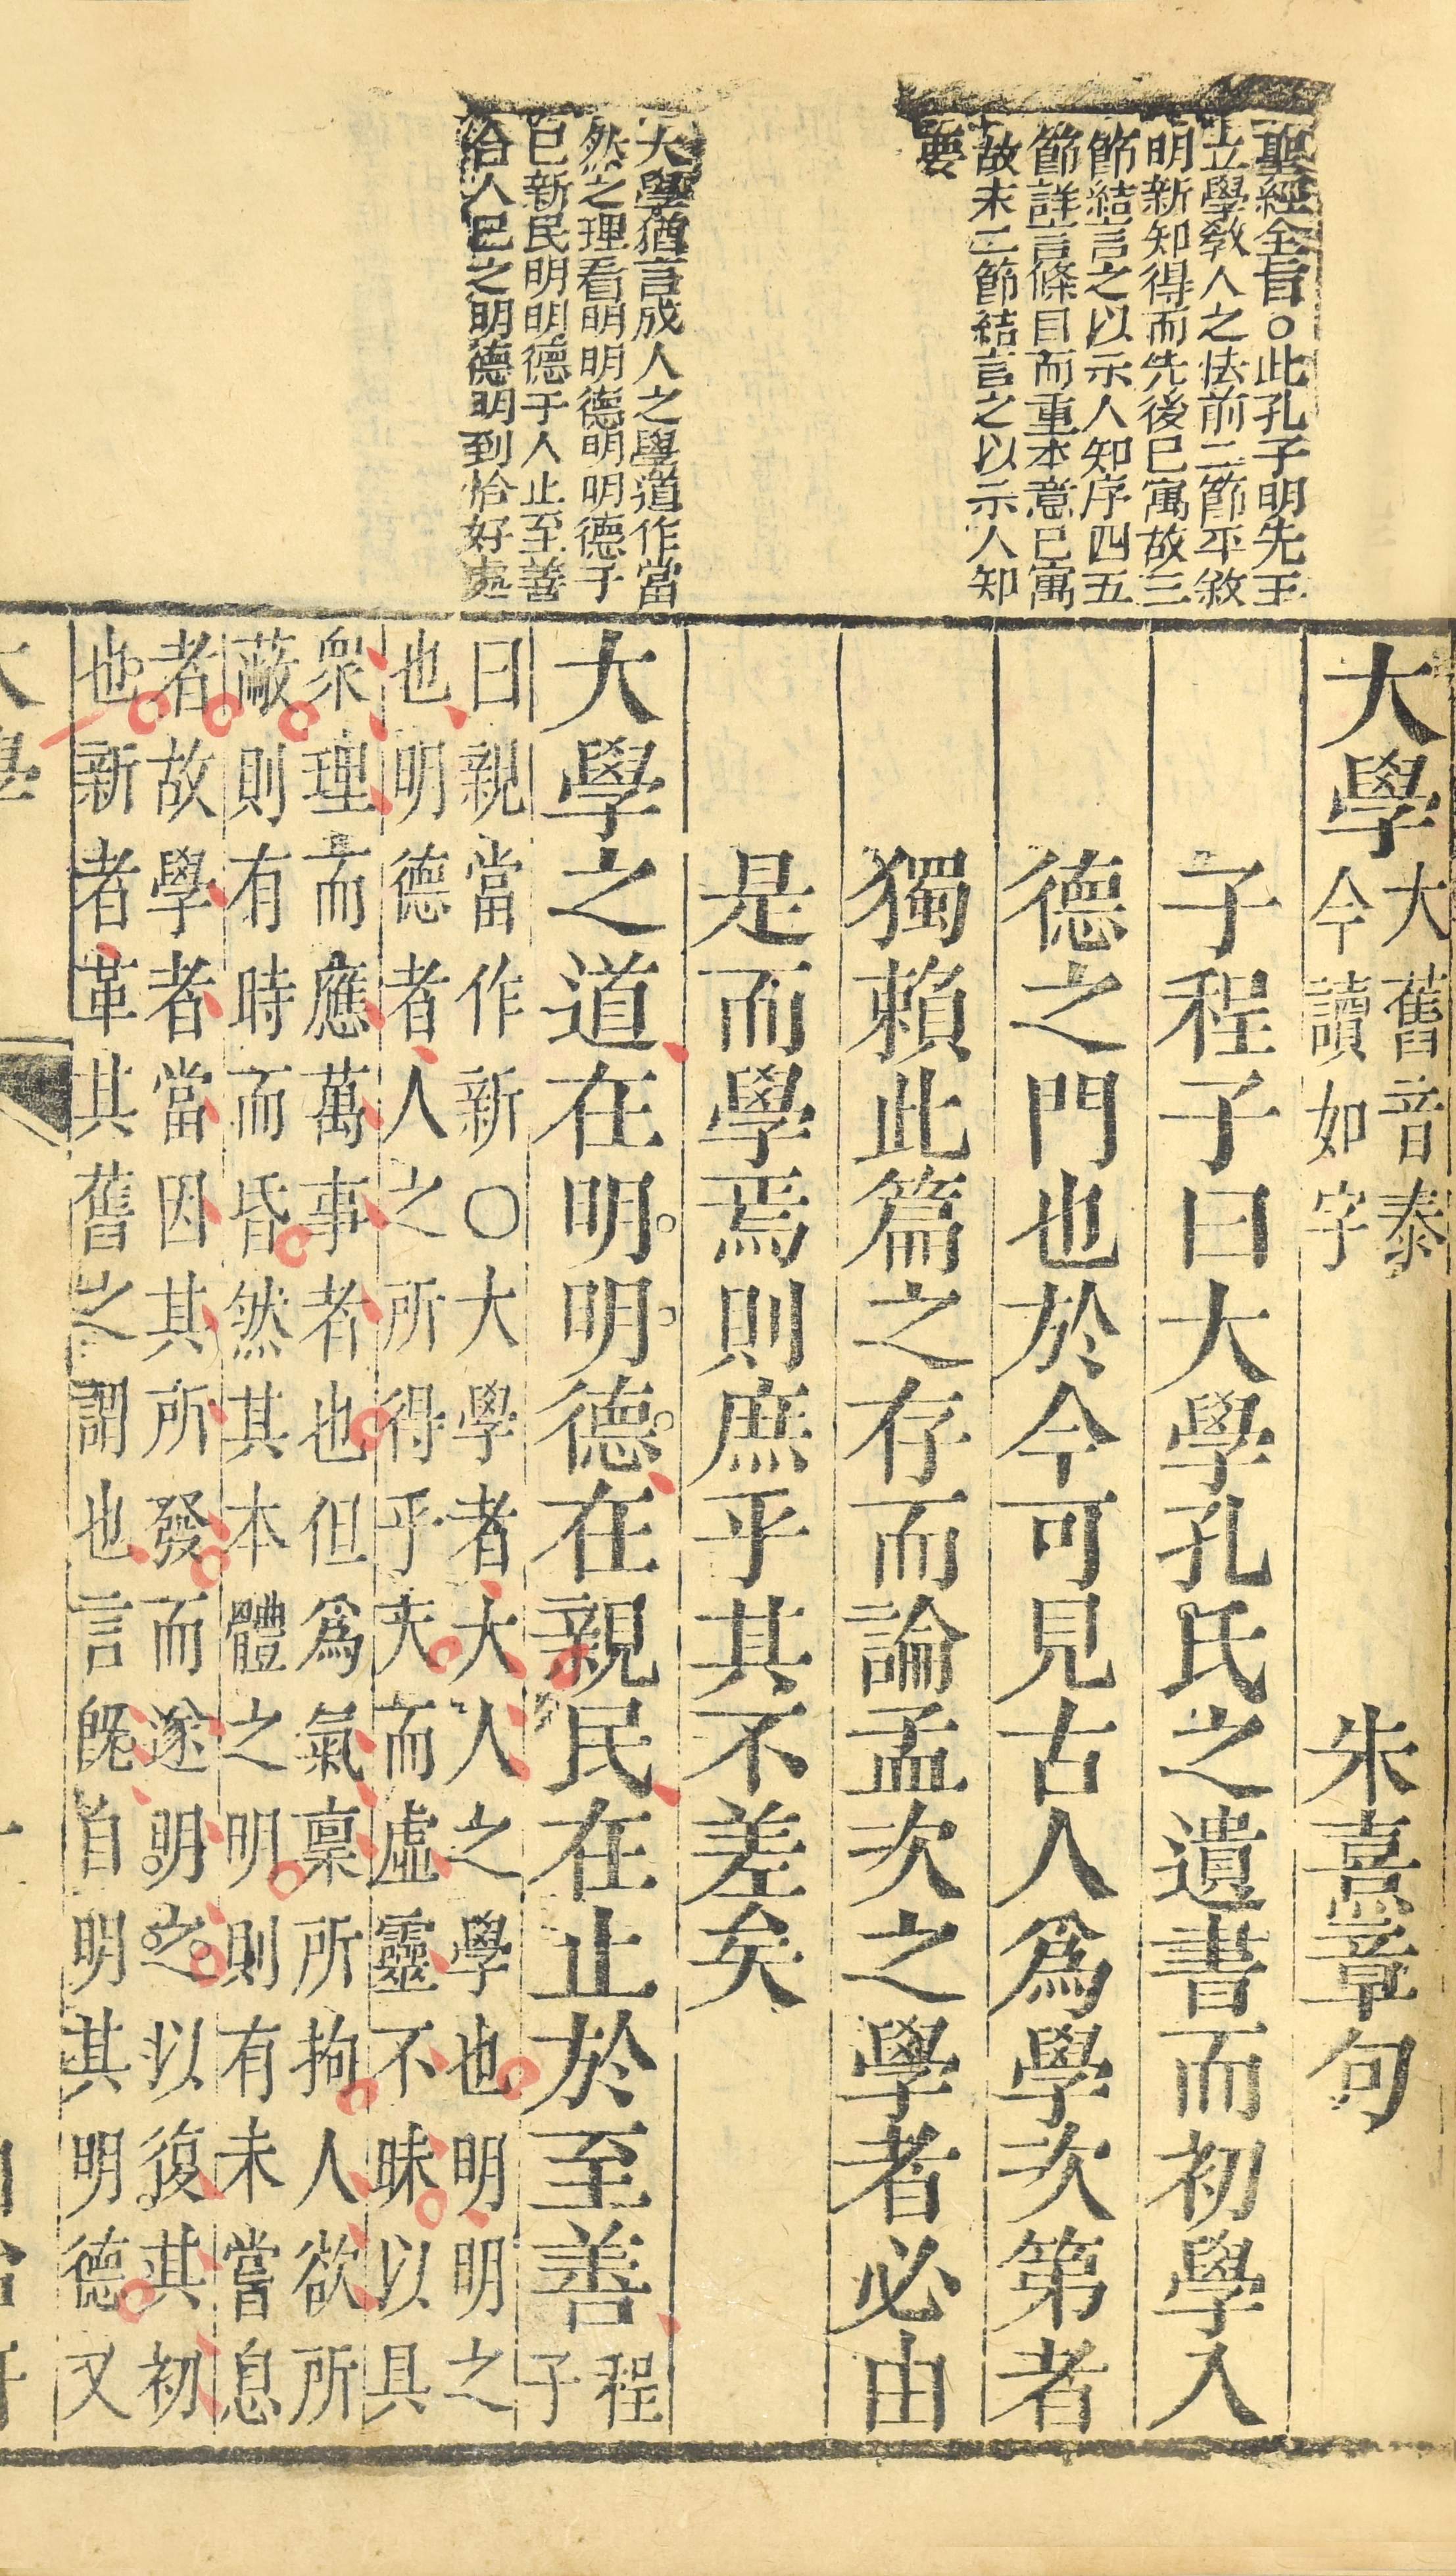 聖經全旨○此孔子明先王
立學敎人之法前二節平敘
明新知得而先後已寓故三
節結言之以示人知序四五
節詳言條目而重本意已寓
故末二節結言之以示人知
要
大學猶言成人之學道作當
然之理看明明德明明德于
己新民明明德于人止至善
合人己之明德明到恰好處
大學
大舊音泰
今讀如字
朱熹章句
子程子曰大學孔氏之遺書而初學入
德之門也於今可見古人爲學次第者
獨賴此篇之存而論孟次之學者必由
是而學焉則庶乎其不差矣
大學之道在明明德在親民在止於至善
程
子
曰親當作新○大學者大人之學也明明之
也明德者人之所得乎天而虛靈不昧以具
衆理而應萬事者也但爲氣稟所拘人欲所
蔽則有時而昏然其本體之明則有未嘗息
者故學者當因其所發而遂明之以復其初
也新者革其舊之謂也言旣自明其明德又